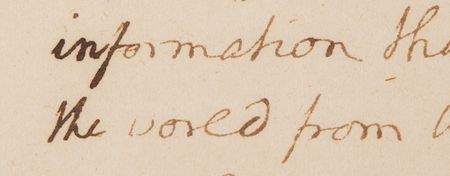 information tha
the world from